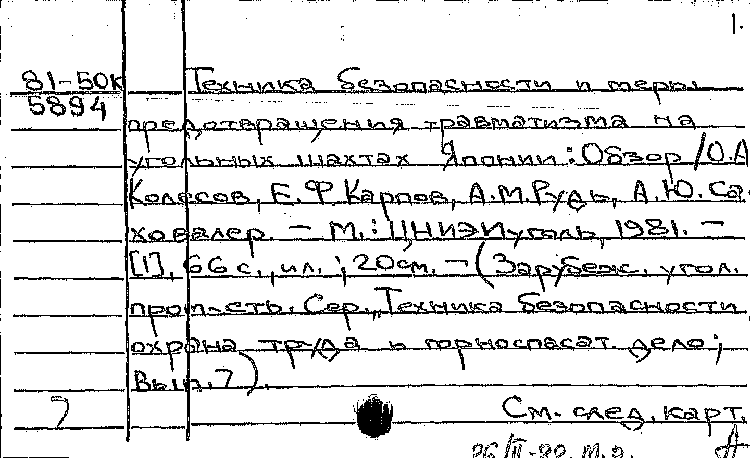 1.
81-50к Техника безопасности и меры
5894
предотвращения травматизма на
угольных шахтах Японии: Обзор /О.А
Колесов, Е.Ф Карпов, А.М.Рудь, А.Ю. Са-
ховалер. – М.: ЦНИЭИуголь, 1981. –
[1], 66 с., ил.; 20см. – (Зарубеж. угол.
пром-сть. Сер. „Техника безопасности,
охрана труда и горноспасат. дело;
Вып. 7).
См. след. карт.